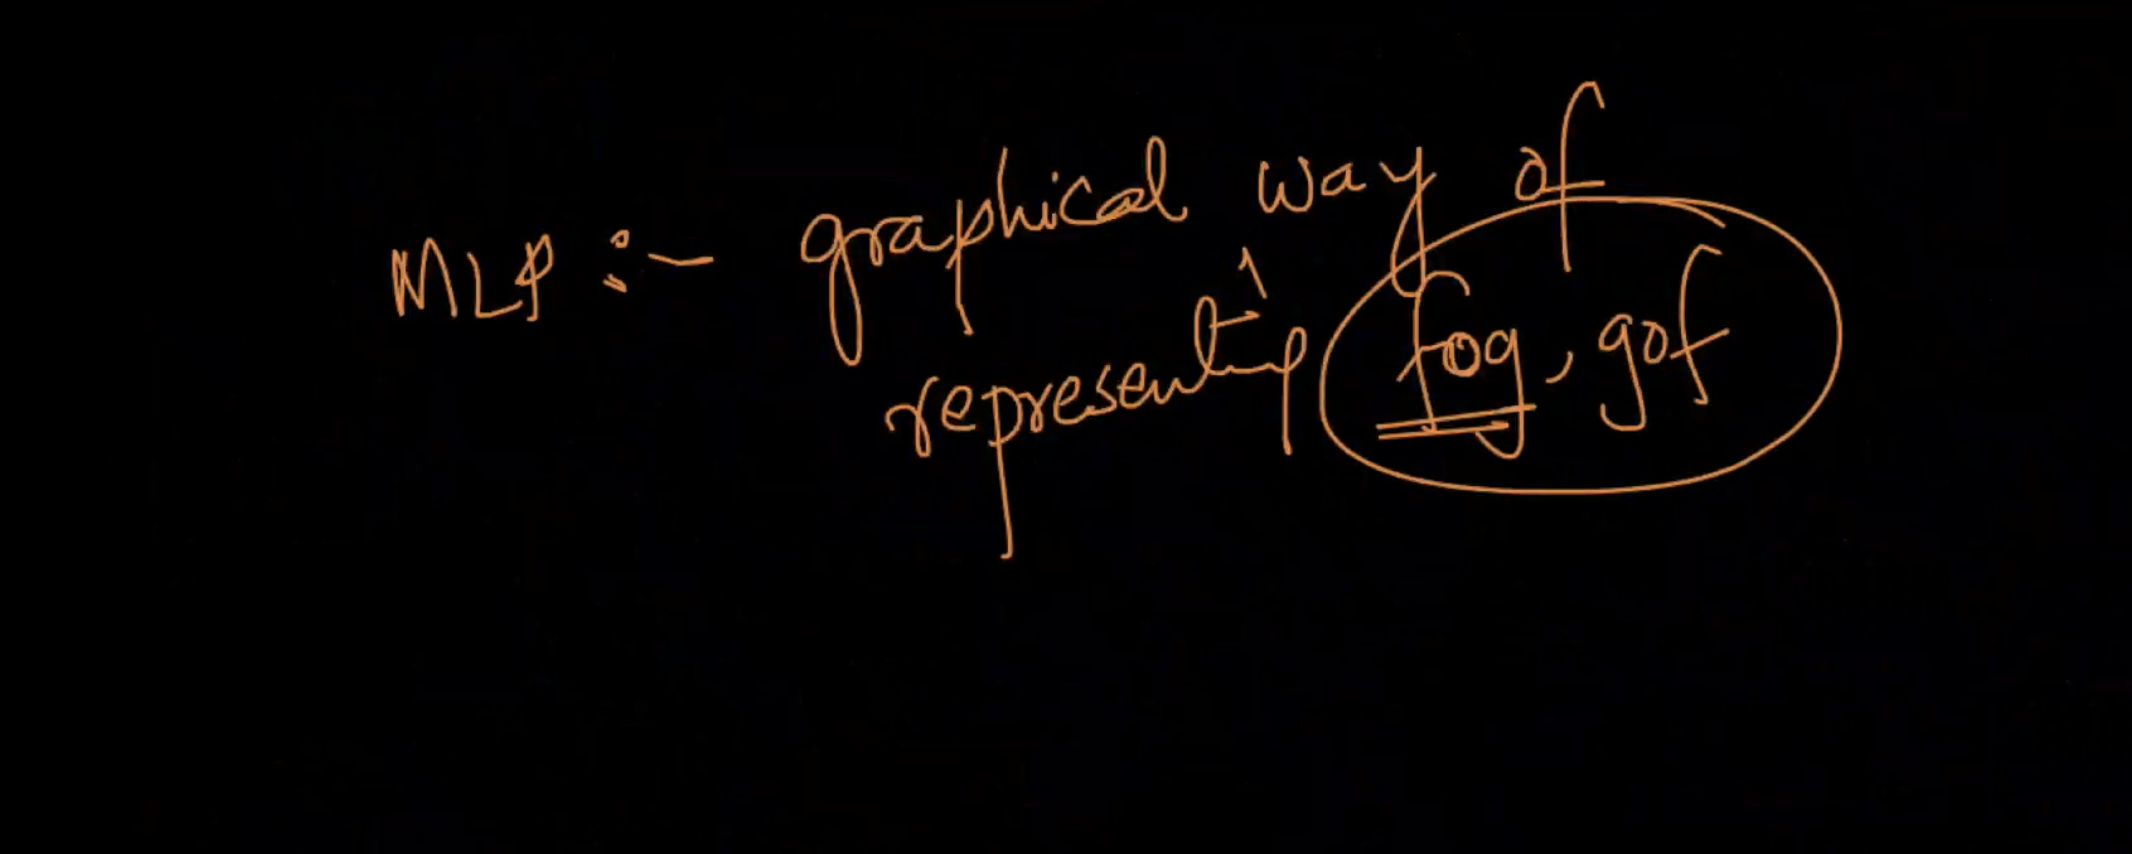 MLP :- graphical way of
representing fog, gof